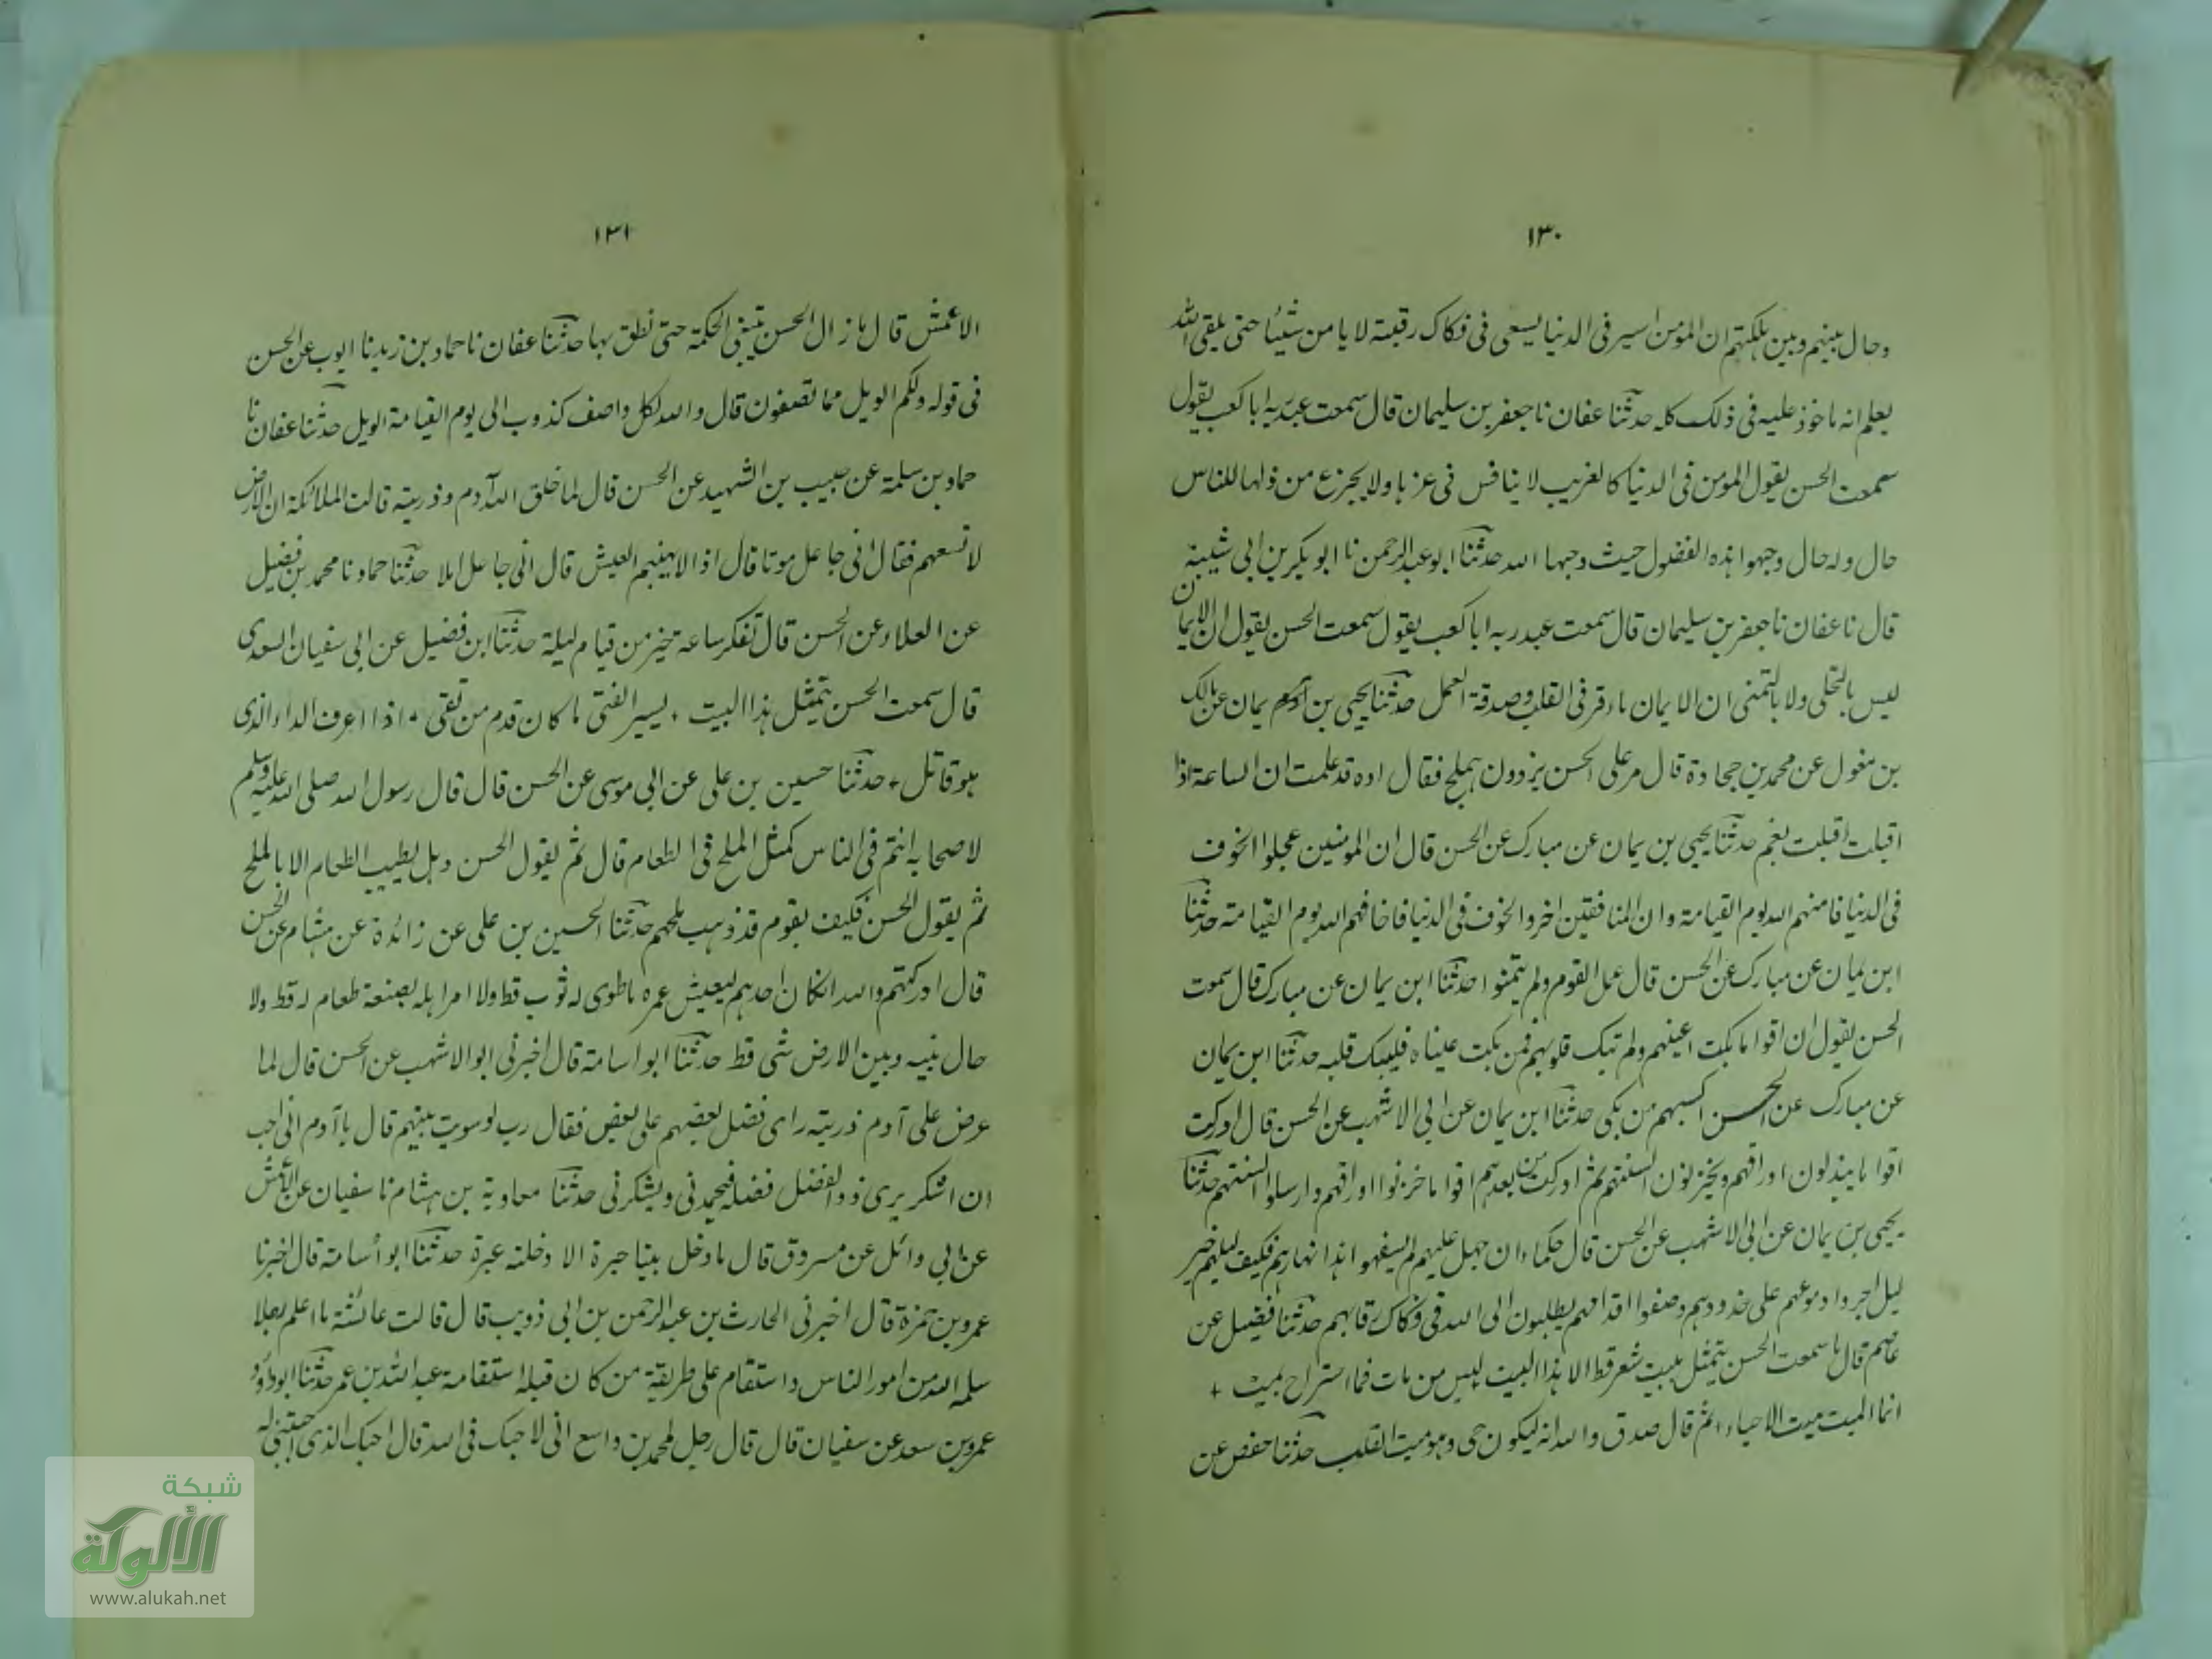 ١٣٠
وحال بينهم وبين هلكتهم ان المؤمن اسير فى الدنيا يسعى فى فكاك رقبته لا يامن شيئا حتى يلقى الله
يعلم انه ماخوذ عليه فى ذلك كله حدثنا عفان نا جعفر بن سليمان قال سمعت عبد ربه ابا كعب يقول
سمعت الحسن يقول المومن فى الدنيا كالغريب لا ينافس فى عزها ولا يجزع من ذلها للناس
حال وله حال وجهوا هذه الفضول حيث وجهها الله حدثنا ابو عبد الرحمن نا ابو بكر بن ابى شيبة
قال نا عفان نا جعفر بن سليمان قال سمعت عبد ربه ابا كعب يقول سمعت الحسن يقول ان الايمان
ليس بالتحلى ولا بالتمنى ان الايمان ما وقر فى القلب وصدقة العمل حدثنا يحيى بن آدم يمان عن مالك
بن مغول عن محمد بن جحادة قال مر على الحسن برذون يهملج فقال اوه قد علمت ان الساعة اذا
اقبلت اقبلت بغم حدثنا يحيى بن يمان عن مبارك عن الحسن قال ان المومنين عجلوا الخوف
فى الدنيا فامنهم الله يوم القيامة وان المنافقين اخروا الخوف فى الدنيا فاخافهم الله يوم القيامة حدثنا
ابن يمان عن مبارك عن الحسن قال عمل القوم ولم يتمنوا حدثنا ابن يمان عن مبارك قال سمعت
الحسن يقول ان اقواما بكت اعينهم ولم تبك قلوبهم فمن بكت عيناه فليبك قلبه حدثنا ابن يمان
عن مبارك عن الحسن اكسبهم من بكى حدثنا ابن يمان عن ابى الاشهب عن الحسن قال ادركت
اقواما يبذلون اوراقهم ويخزنون السنتهم ثم ادركت من بعدهم اقواما خزنوا اوراقهم وارسلوا السنتهم حدثنا
يحيى بن يمان عن ابى الاشهب عن الحسن قال حكماء ان جهل عليهم لم يسفهوا هذا نهارهم فكيف ليلهم خير
ليل اجروا دموعهم على خدودهم وصفوا اقدامهم يطلبون الى الله فى فكاك رقابهم حدثنا فضيل عن
عاصم قال ما سمعت الحسن يتمثل ببيت شعر قط الا هذا البيت ليس من مات فما استراح بميت +
انما الميت ميت الاحياء، ثم قال صدق والله انه ليكون حى وهو ميت القلب حدثنا حفص عن
١٣١
الاعمش قال ما زال الحسن يبتغى الحكمة حتى نطق بها حدثنا عفان نا حماد بن زيد نا ايوب عن الحسن
فى قوله ولكم الويل مما تصفون قال والله لكل واصف كذوب الى يوم القيامة الويل حدثنا عفان نا
حماد بن سلمة عن حبيب بن الشهيد عن الحسن قال لما خلق الله آدم وذريته قالت الملائكة ان الارض
لا تسعهم فقال انى جاعل موتا قال اذا لا يهنيهم العيش قال انى جاعل املا حدثنا حماد نا محمد بن فضيل
عن العلاء عن الحسن قال تفكر ساعة خير من قيام ليلة حدثنا ابن فضيل عن ابى سفيان السعدى
قال سمعت الحسن يتمثل هذا البيت + يسير الفتى ما كان قدم من تقى + اذا اعرف الداء الذى
هو قاتل + حدثنا حسين بن على عن ابى موسى عن الحسن قال قال رسول الله صلى الله عليه وسلم
لاصحابه انتم فى الناس كمثل الملح فى الطعام قال ثم يقول الحسن وهل يطيب الطعام الا بالملح
ثم يقول الحسن فكيف بقوم قد ذهب ملحهم حدثنا الحسين بن على عن زائدة عن هشام عن الحسن
قال ادركتهم والله انكان احدهم ليعيش عمره ما طوى له ثوب قط ولا امر اهله بصنعة طعام له قط ولا
حال بينه وبين الارض شى قط حدثنا ابو اسامة قال اخبرنى ابو الاشهب عن الحسن قال لما
عرض على آدم ذريته راى فضل بعضهم على بعض فقال رب لو سويت بينهم قال يا آدم انى احب
ان اشكر يرى ذو الفضل فضله فيحمدنى ويشكرنى حدثنا معاوية بن هشام نا سفيان عن الاعمش
عن ابى وائل عن مسروق قال ما دخل بيتا حبرة الا دخلته عبرة حدثنا ابو أسامة قال اخبرنا
عمرو بن حمزة قال اخبرنى الحارث بن عبد الرحمن بن ابى ذويب قال قالت عائشة ما اعلم رجلا
سلمه الله من امور الناس واستقام على طريقة من كان قبله استقامة عبد الله بن عمر حدثنا ابو داؤد
عمرو بن سعد عن سفيان قال قال رجل لمحمد بن واسع انى لاحبك فى الله قال احبك الذى احببتنى له
شبكة
الألوكة
www.alukah.net